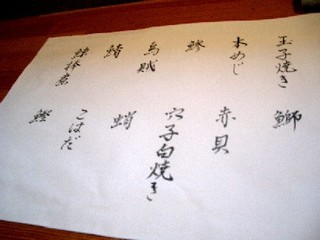 玉子焼き
本めじ
鯵
烏賊
鯖
鰤
赤貝
穴子白焼き
蛸
こはだ
鰹